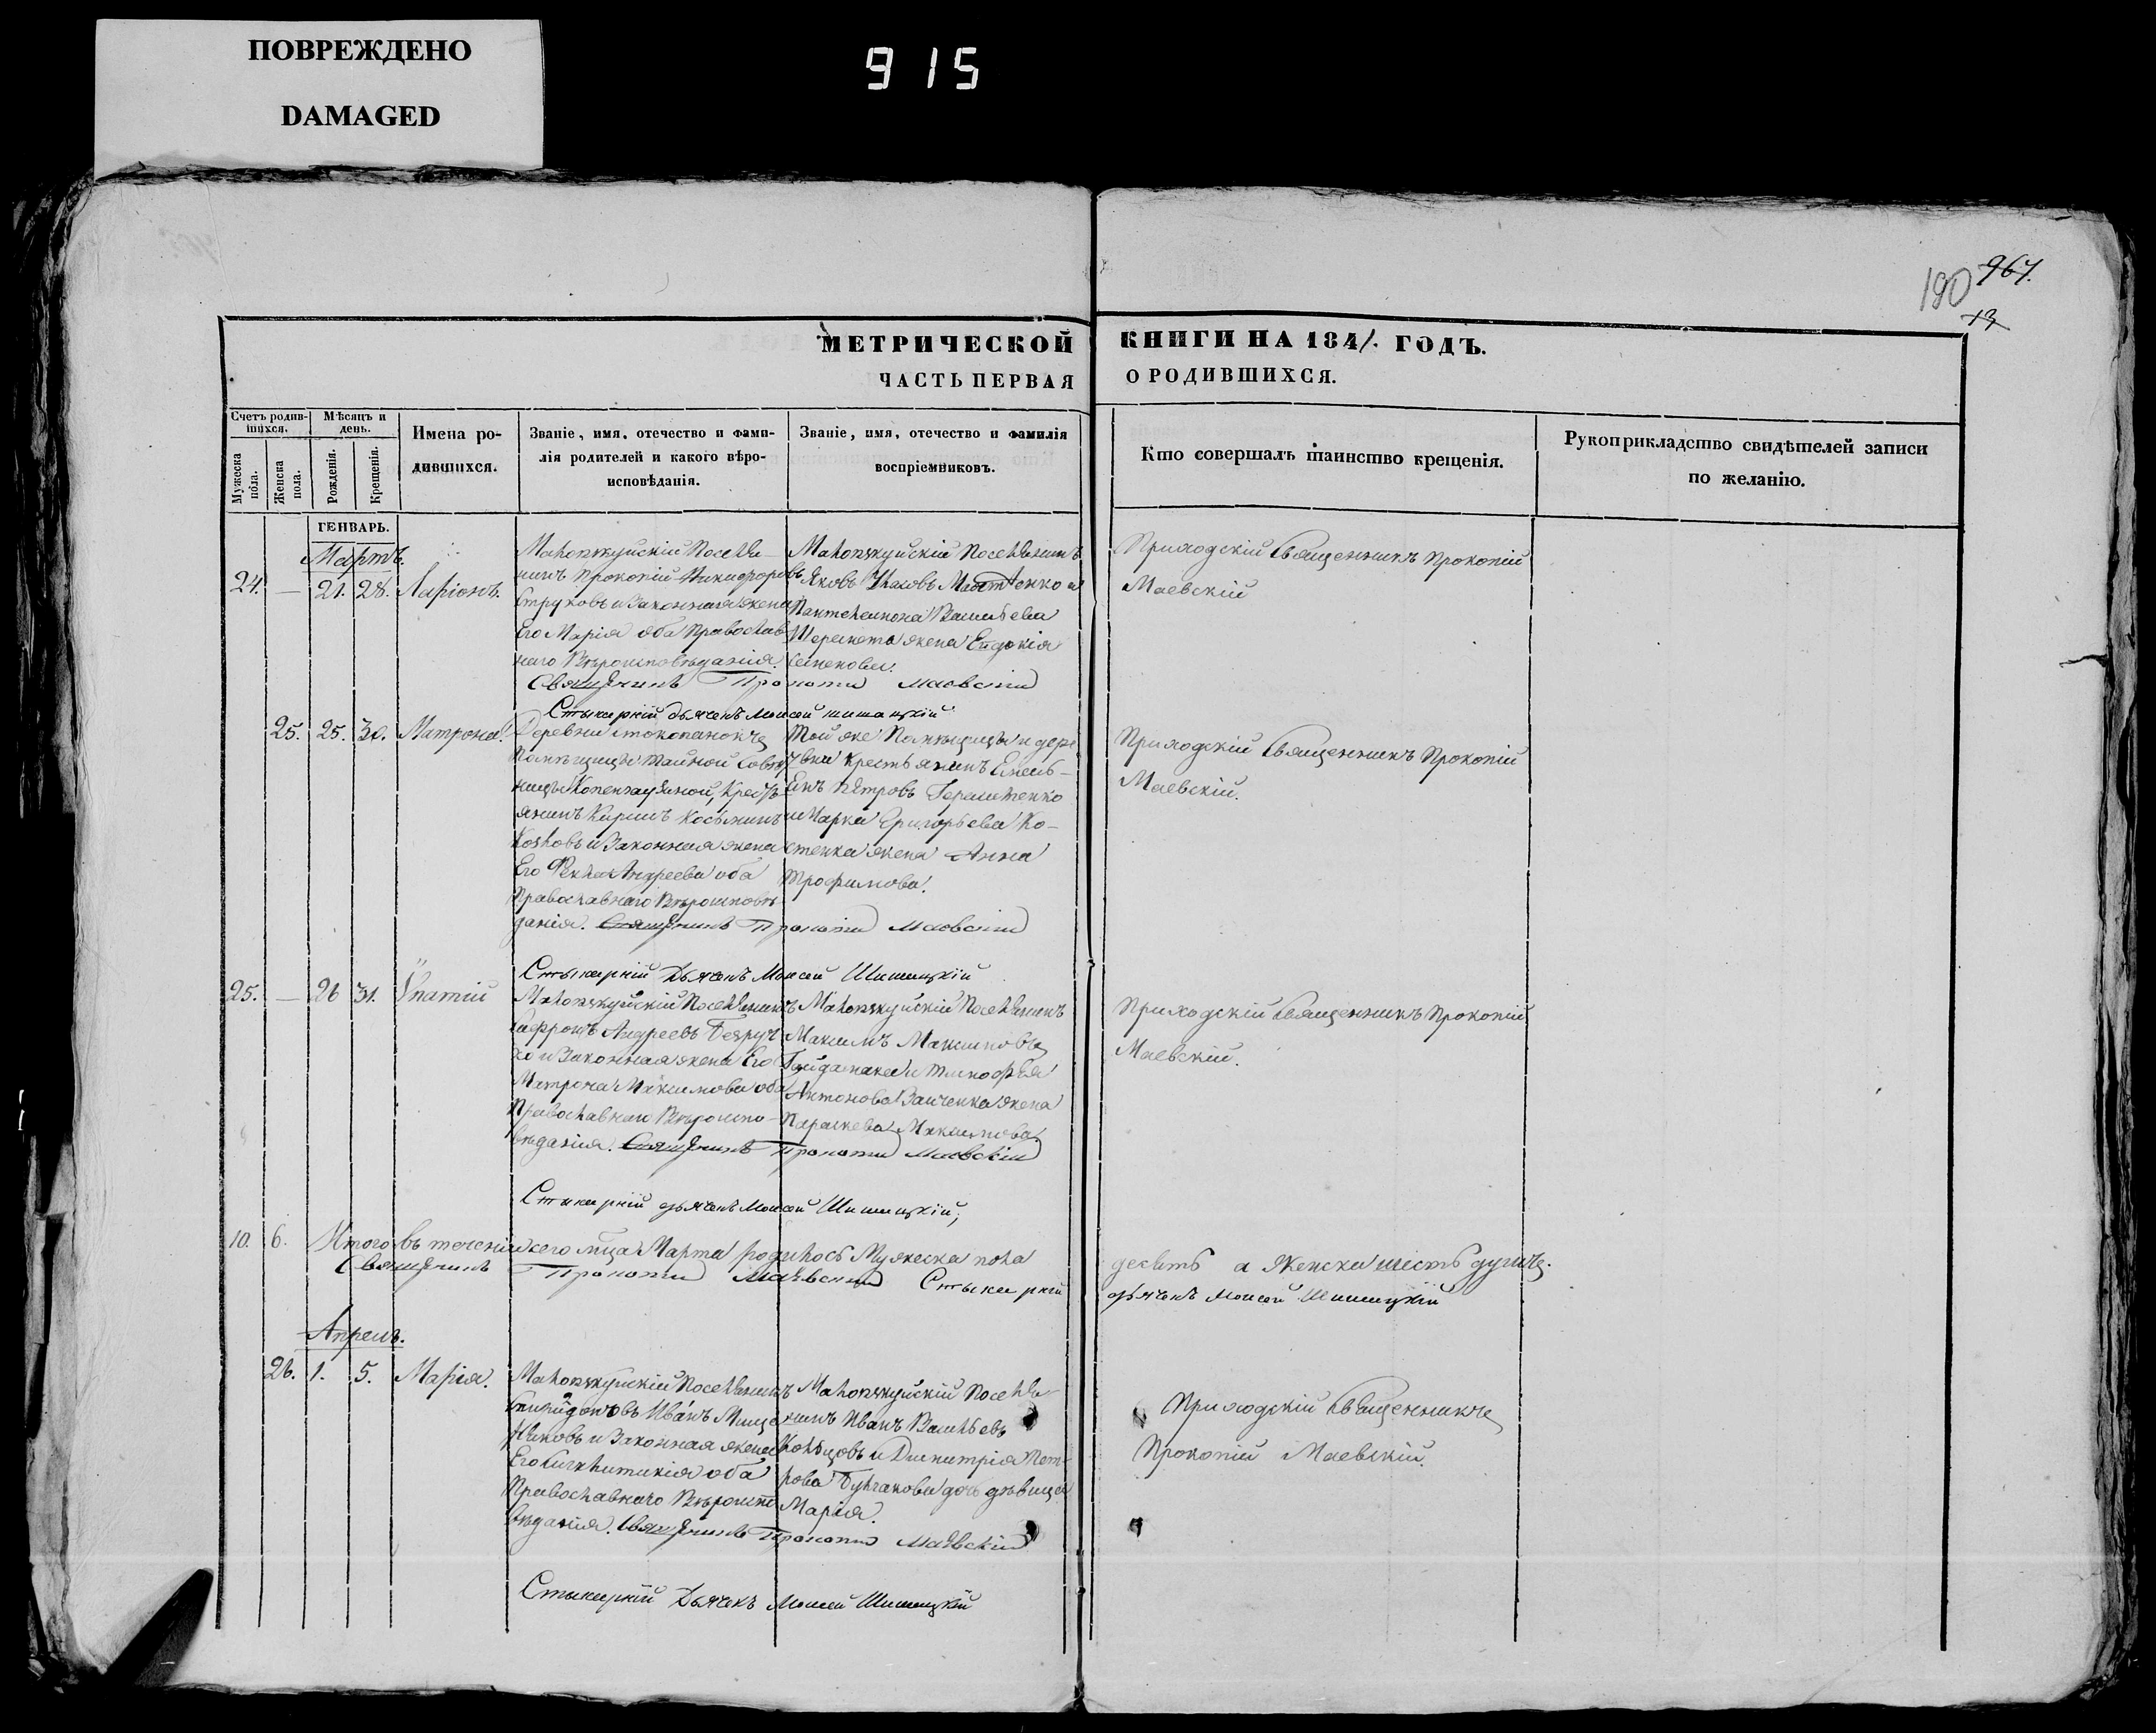 ПОВРЕЖДЕНО
DAMAGED
915
190 967.
13
МЕТРИЧЕСКОЙ КНИГИ НА 1841. ГОДЪ.
ЧАСТЬ ПЕРВАЯ О РОДИВШИХСЯ.
Счетъ родившихся.
Мужеска пола.
Женска пола.
Мѣсяцъ и день.
Рожденія.
Крещенія.
Имена родившихся.
Званіе, имя, отечество и фамилія родителей и какого вѣроисповѣданія.
Званіе, имя, отечество и фамилія воспріемниковъ.
Кто совершалъ таинство крещенія.
Рукоприкладство свидѣтелей записи по желанію.
ГЕНВАРЬ.
Мартъ.
24. — 21. 28. Ларіонъ.
Поселянинъ Прокопій Никифоровъ
Струковъ и Законная жена
Его Марія оба Православнаго
Вѣроисповѣданія.
Поселянинъ
Яковъ
Пантелеимона Васильева
жена Евдокія
Семенова.
Приходскій Священникъ Прокопій
Маевскій
Священникъ Прокопій Маевскій
Стихарній дьячекъ Моисей Шишацкій
25. 25. 30. Матрона.
Деревни
Помѣщицы Тайной Совѣтницы
Крестьянинъ
Козловъ и Законная жена
Его Фекла Андреева оба
Православнаго Вѣроисповѣданія.
Той же Помѣщицы и деревни
Крестьянинъ Емельянъ
Петровъ Герасименко
и Марка Григорьева Костенка
жена Анна
Трофимова.
Приходскій Священникъ Прокопій
Маевскій.
Священникъ Прокопій Маевскій
Стихарній Дьячекъ Моисей Шишацкій
25. — 26 31. Ѵпатій
Поселянинъ
Сафронъ Андреевъ
и Законная жена Его
Матрона Максимова оба
Православнаго Вѣроисповѣданія.
Поселянинъ
Максимъ Максимовъ
Гайдамака и Тимофѣя
Антонова Заиченка жена
Параскева Максимова
Приходскій Священникъ Прокопій
Маевскій.
Священникъ Прокопій Маевскій
Стихарній дьячекъ Моисей Шишацкій,
10. 6. Итого въ теченіи сего мца Марта родилось Мужеска пола десять а Женска шесть душъ.
Священникъ Прокопій Маевскій Стихарній дьячекъ Моисей Шишацкій
Апрель.
26. 1. 5. Марія.
Поселянинъ
Иванъ
и Законная жена
Его оба
Православнаго Вѣроисповѣданія.
Поселянинъ
Иванъ Васильевъ
Кольцовъ и Димитрія Петрова
Булгакова дочь дѣвица
Марія.
Приходскій Священникъ
Прокопій Маевскій.
Священникъ Прокопій Маевскій
Стихарній Дьячекъ Моисей Шишацкій